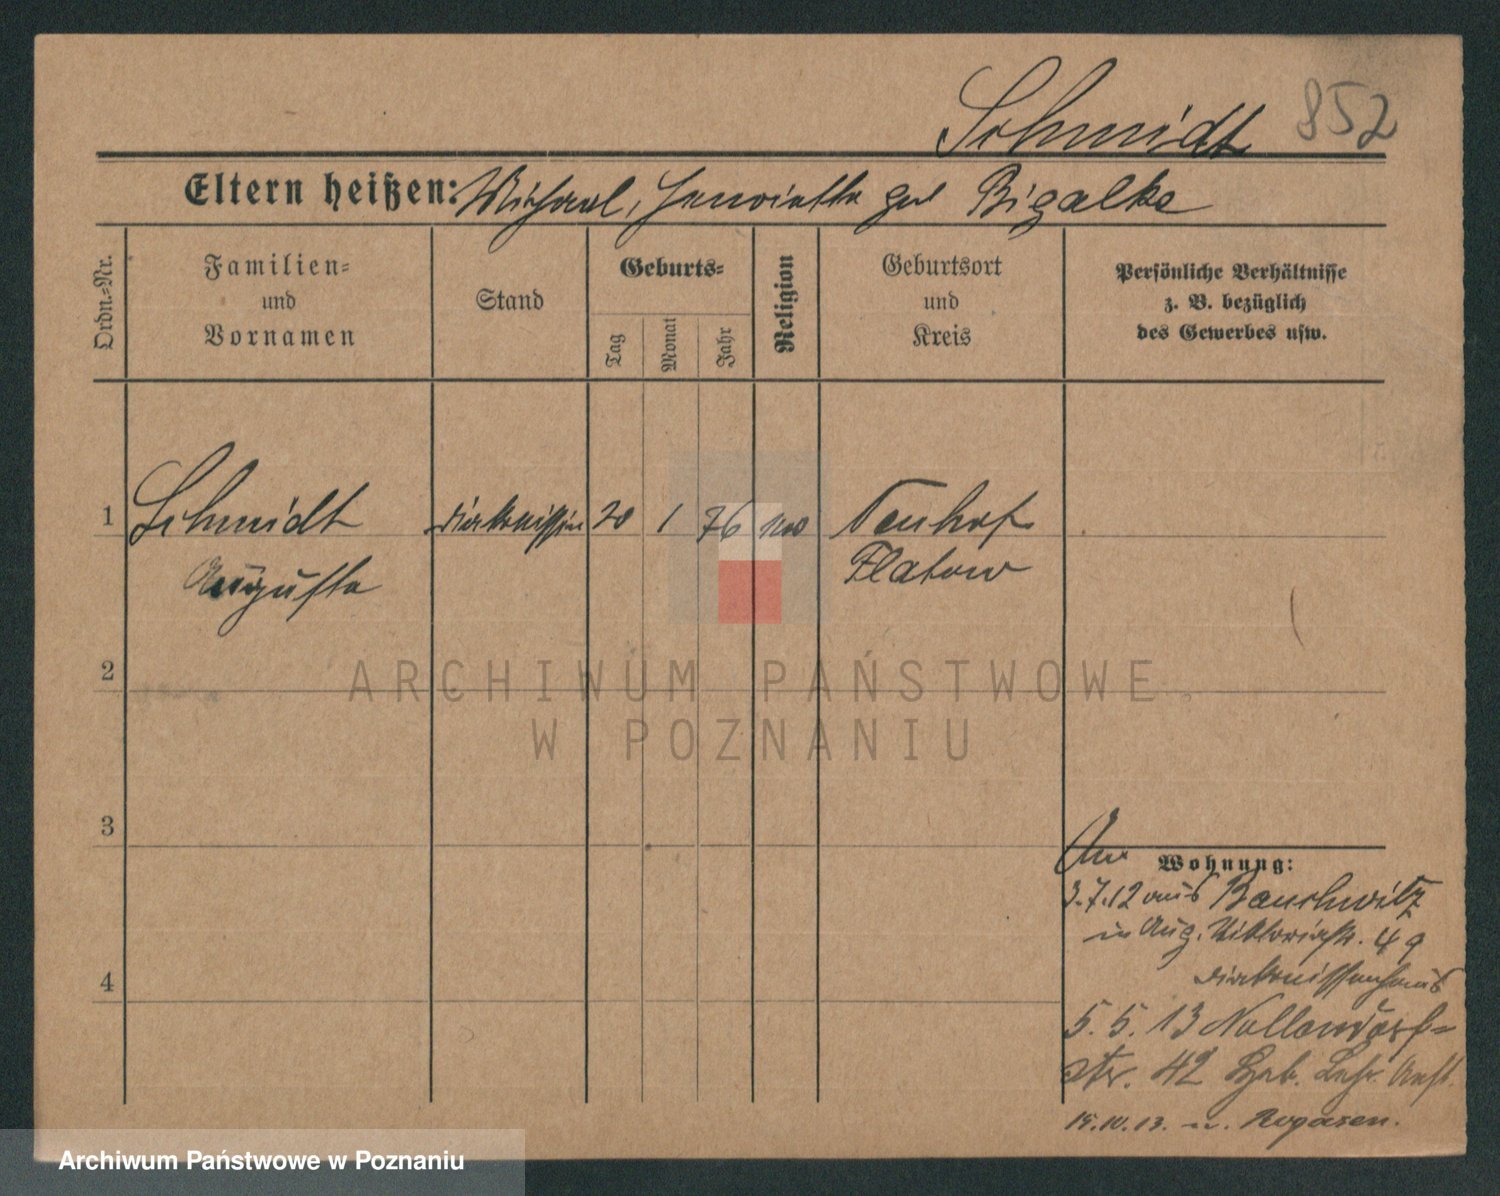 Schmidt 852
Eltern heißen: Michael, Henriette geb Bigalke
Ordn.=Nr.
Familien=
und
Vornamen
Stand
Geburts=
Tag
Monat
Jahr
Religion
Geburtsort
und
Kreis
Persönliche Verhältnisse
z. B. bezüglich
des Gewerbes usw.
1 Schmidt Diakonissin 20 1 76 Neuhof
Auguste Flatow
2
3
4
ARCHIWUM PAŃSTWOWE
W POZNANIU
Wohnung:
3.7.12 aus Bauchwitz
in Aug. Viktoriastr. 49
Diakonissenhaus
5. 5. 13 Nollendorf=
str. 42 Heb. Lehr. Anst.
15.10.13. n. Rogasen.
Archiwum Państwowe w Poznaniu